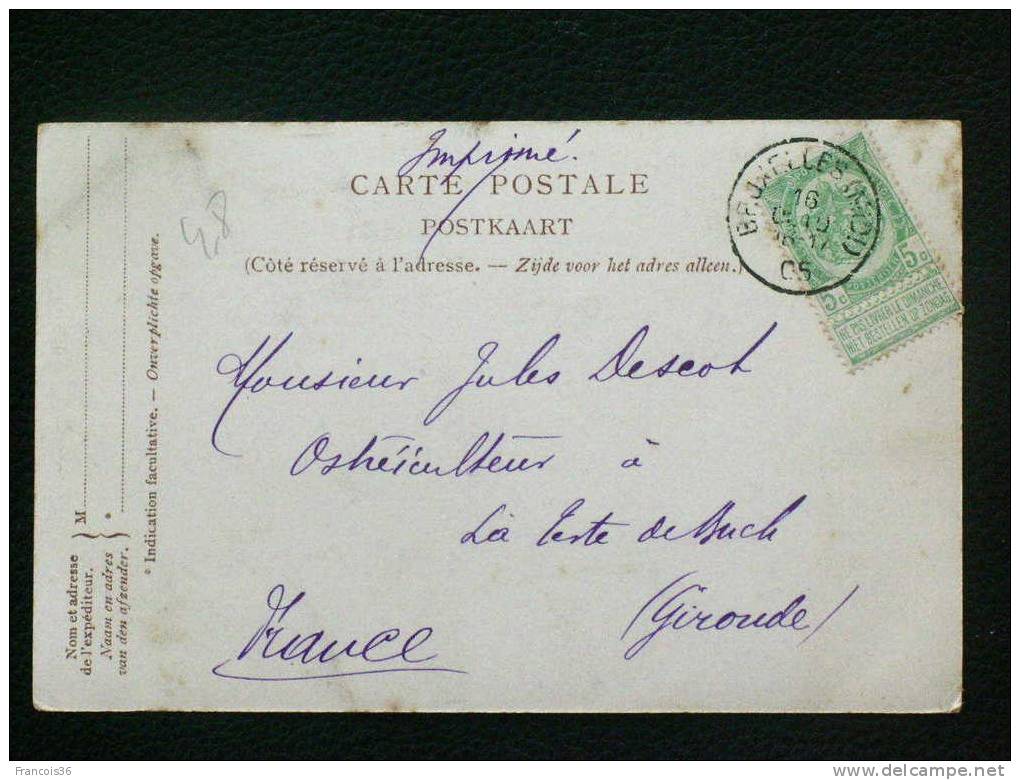 Imprimé.
CARTE POSTALE
POSTKAART
(Côté réservé à l'adresse. — Zijde voor het adres alleen.)
BRUXELLES
16
05
5c 5c
NE PAS LIVRER LE DIMANCHE
NIET BESTELLEN OP ZONDAG
4,8
Monsieur Jules Descot
Ostréiculteur à
La Teste de Buch
(Gironde)
France
Nom et adresse
de l'expéditeur.
Naam en adres
van den afzender.
M
*
* Indication facultative. — Onverplichte opgave.
Francois36
www.delcampe.net